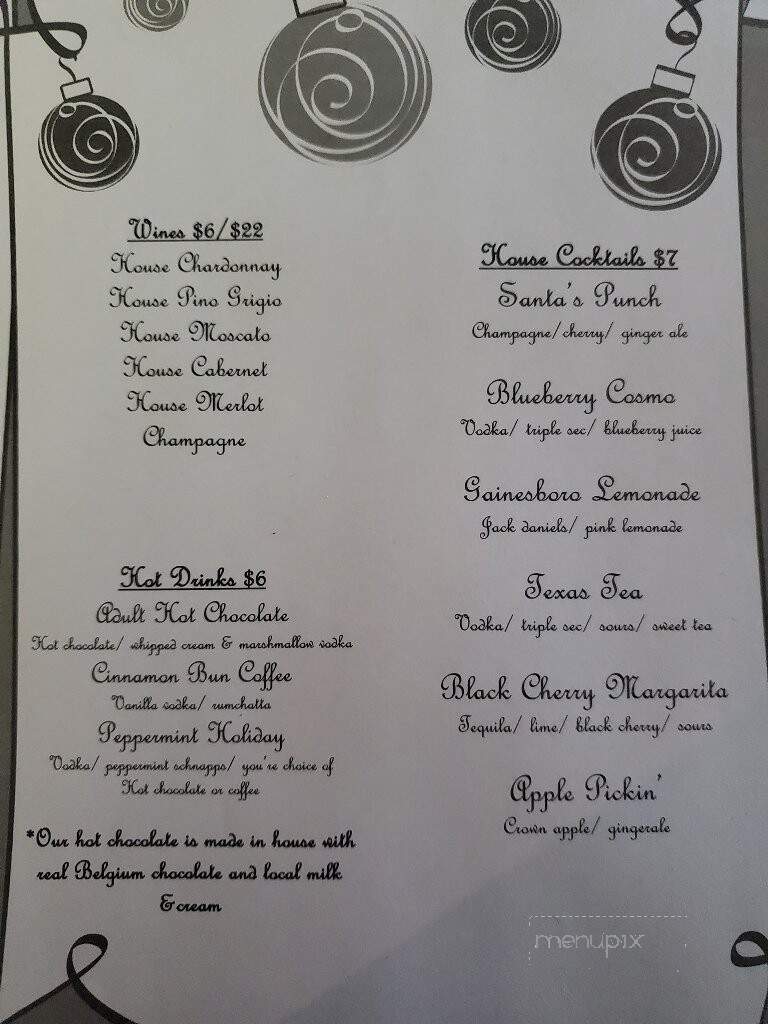 Wines $6/$22
House Chardonnay
House Pino Grigio
House Moscato
House Cabernet
House Merlot
Champagne
Hot Drinks $6
Adult Hot Chocolate
Hot chocolate/ whipped cream & marshmallow vodka
Cinnamon Bun Coffee
Vanilla vodka/ rumchatta
Peppermint Holiday
Vodka/ peppermint schnapps/ you're choice of
Hot chocolate or coffee
*Our hot chocolate is made in house with
real Belgium chocolate and local milk
& cream
House Cocktails $7
Santa's Punch
Champagne/ cherry/ ginger ale
Blueberry Cosmo
Vodka/ triple sec/ blueberry juice
Gainesboro Lemonade
Jack daniels/ pink lemonade
Texas Tea
Vodka/ triple sec/ sours/ sweet tea
Black Cherry Margarita
Tequila/ lime/ black cherry/ sours
Apple Pickin'
Crown apple/ gingerale
menupix